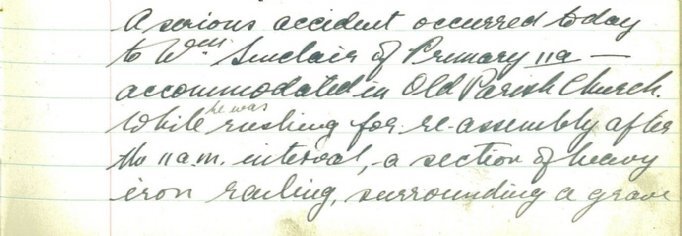 A serious accident occurred today
to Wm Sinclair of Primary 11a —
accommodated in Old Parish Church.
While he was rushing for re-assembly after
the 11 a.m. interval, a section of heavy
iron railing, surrounding a grave